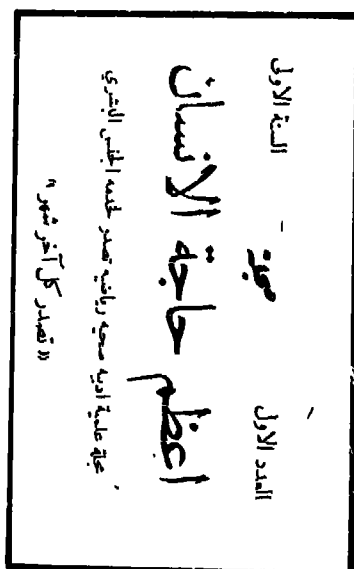 السنة الاولى العدد الاول
اعظم حاجة الانسان
مجلة علمية ادبية صحية رياضية تصدر لخدمة الجنس البشري
« تصدر كل آخر شهر »